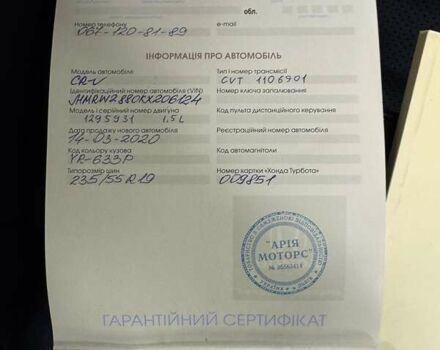 обл.
Номер телефону e-mail
067-120-81-89
ІНФОРМАЦІЯ ПРО АВТОМОБІЛЬ
Модель автомобіля Тип і номер трансмісії
CR-V CVT 1106901
Ідентифікаційний номер автомобіля (VIN) Номер ключа запалювання
JHMRW2880KX206124
Модель і серійний номер двигуна Код пульта дистанційного керування
1295931 1,5L
Дата продажу нового автомобіля Реєстраційний номер автомобіля
14-03-2020
Код кольору кузова Код автомагнітоли
YR-633P
Типорозмір шин Номер картки «Хонда Турбота»
235/55R19 009851
"АРІЯ
МОТОРС"
ГАРАНТІЙНИЙ СЕРТИФІКАТ